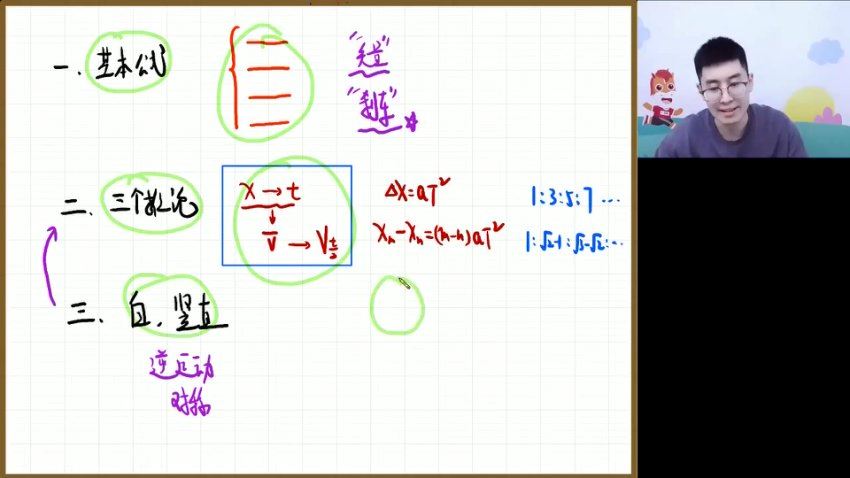 一、基本公式
"关立"
"刹车"
二、三个推论
x→t
↓
v̄ → V_{t/2}
Δx=aT²
Xₘ-Xₙ=(m-n)aT²
1:3:5:7…
1:√2-1:√3-√2:…
三、自、竖直
逆运动
对称